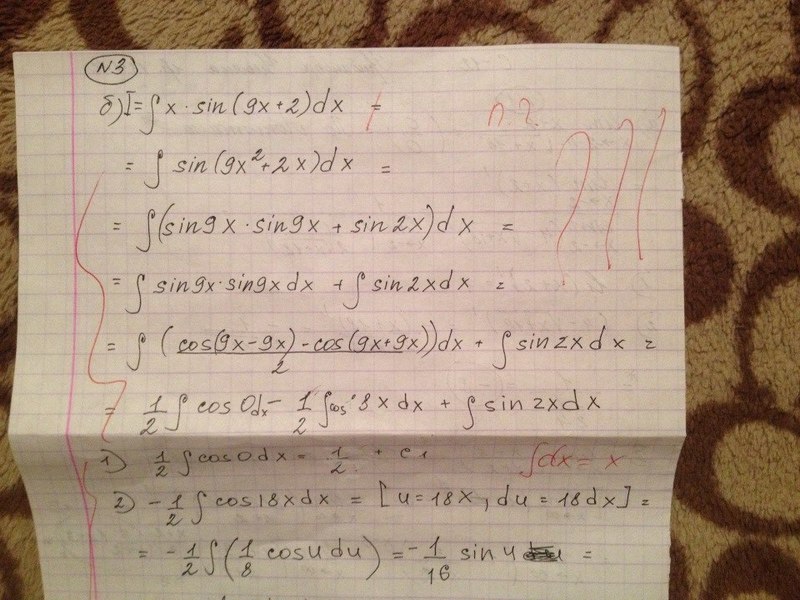 N3
б) I = ∫ x · sin(9x+2)dx =
п 2.
= ∫ sin(9x²+2x)dx =
= ∫(sin9x · sin9x + sin2x)dx =
= ∫ sin9x · sin9x dx + ∫ sin2x dx =
= ∫ (cos(9x-9x) - cos(9x+9x))/2 dx + ∫ sin2x dx =
= 1/2 ∫ cos0 dx - 1/2 ∫ cos18x dx + ∫ sin2x dx
1) 1/2 ∫ cos0 dx = 1/2 + C1
∫dx = x
2) -1/2 ∫ cos18x dx = [u=18x, du=18dx] =
= -1/2 ∫(1/8 cosu du) = -1/16 sin u =